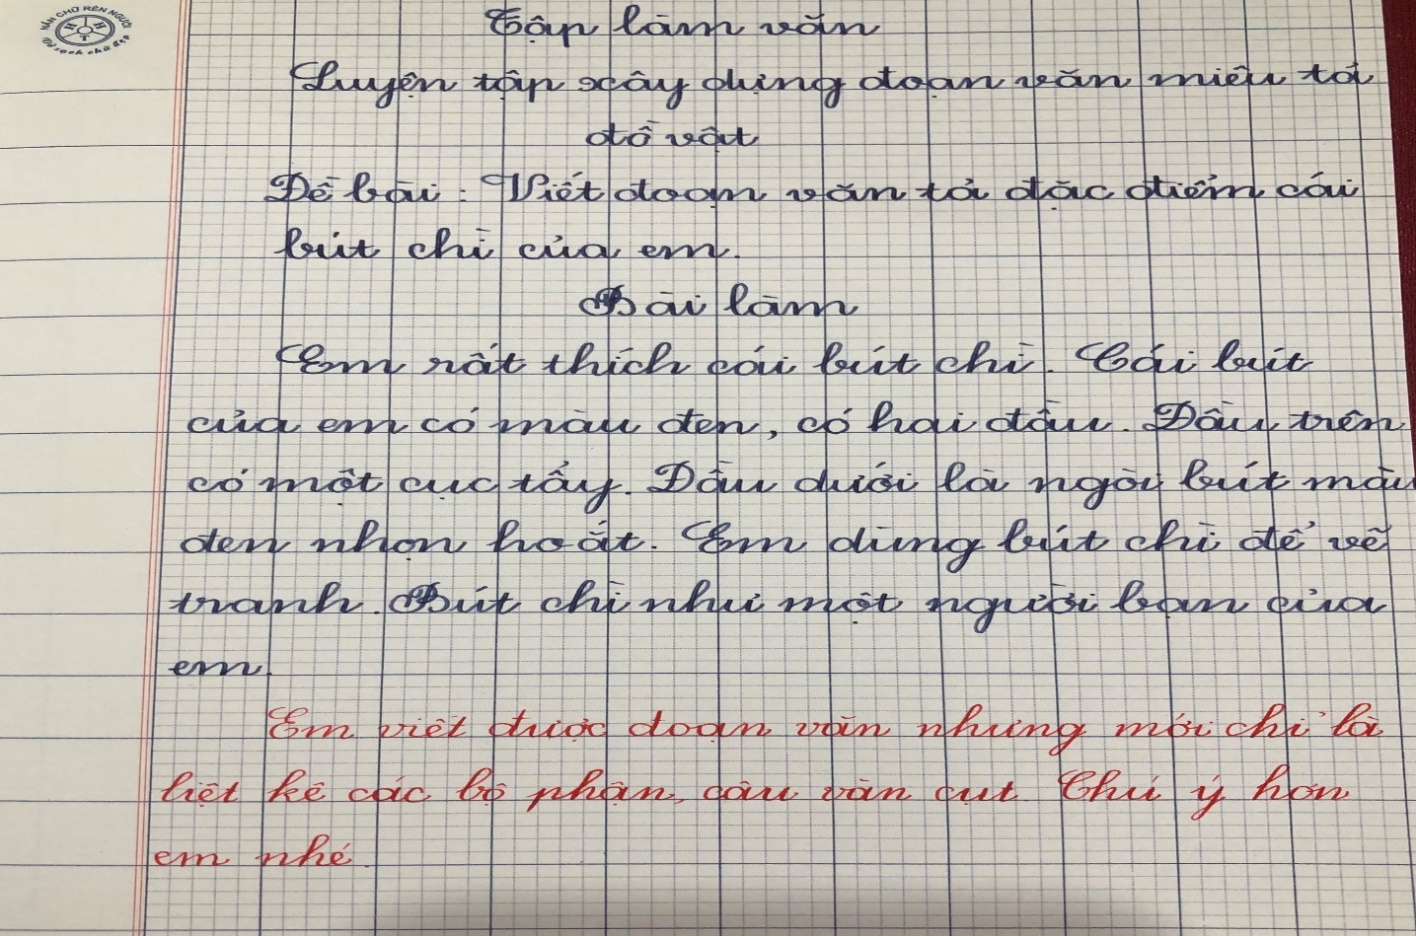 NẮN CHỮ RÈN NGƯỜI
H H T
Vở sạch chữ đẹp
Tập làm văn
Luyện tập xây dựng đoạn văn miêu tả
đồ vật
Đề bài : Viết đoạn văn tả đặc điểm cái
bút chì của em.
Bài làm
Em rất thích cái bút chì. Cái bút
của em có màu đen, có hai đầu. Đầu trên
có một cục tẩy. Đầu dưới là ngòi bút màu
đen nhọn hoắt. Em dùng bút chì để vẽ
tranh. Bút chì như một người bạn của
em.
Em viết được đoạn văn nhưng mới chỉ là
liệt kê các bộ phận, câu văn cụt. Chú ý hơn
em nhé.